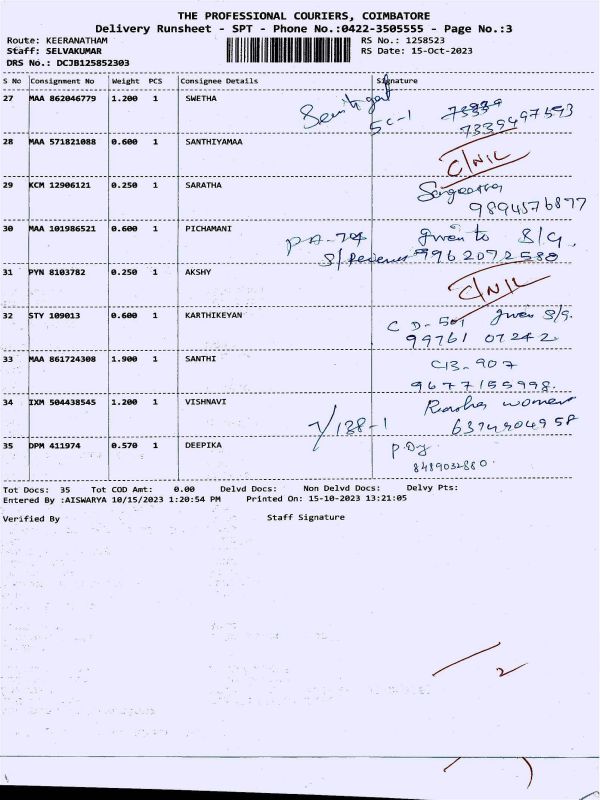 THE PROFESSIONAL COURIERS, COIMBATORE
Delivery Runsheet - SPT - Phone No.:0422-3505555 - Page No.:3
Route: KEERANATHAM RS No.: 1258523
Staff: SELVAKUMAR RS Date: 15-Oct-2023
DRS No.: DCJB125852303
S No Consignment No Weight PCS Consignee Details Signature
27 MAA 862046779 1.200 1 SWETHA
5C-1
7339497593
28 MAA 571821088 0.600 1 SANTHIYAMAA
C/NIL
29 KCM 12906121 0.250 1 SARATHA
9894576877
30 MAA 101986521 0.600 1 PICHAMANI
given to S/G
31 PYN 8103782 0.250 1 AKSHY
C/NIL
32 STY 109013 0.600 1 KARTHIKEYAN
CD-501 given S/G.
99761 07242
33 MAA 861724308 1.900 1 SANTHI
CB-907
9677155998.
34 IXM 504438545 1.200 1 VISHNAVI
women
6374904958
35 DPM 411974 0.570 1 DEEPIKA
8489032860.
Tot Docs: 35 Tot COD Amt: 0.00 Delvd Docs: Non Delvd Docs: Delvy Pts:
Entered By :AISWARYA 10/15/2023 1:20:54 PM Printed On: 15-10-2023 13:21:05
Verified By Staff Signature
2